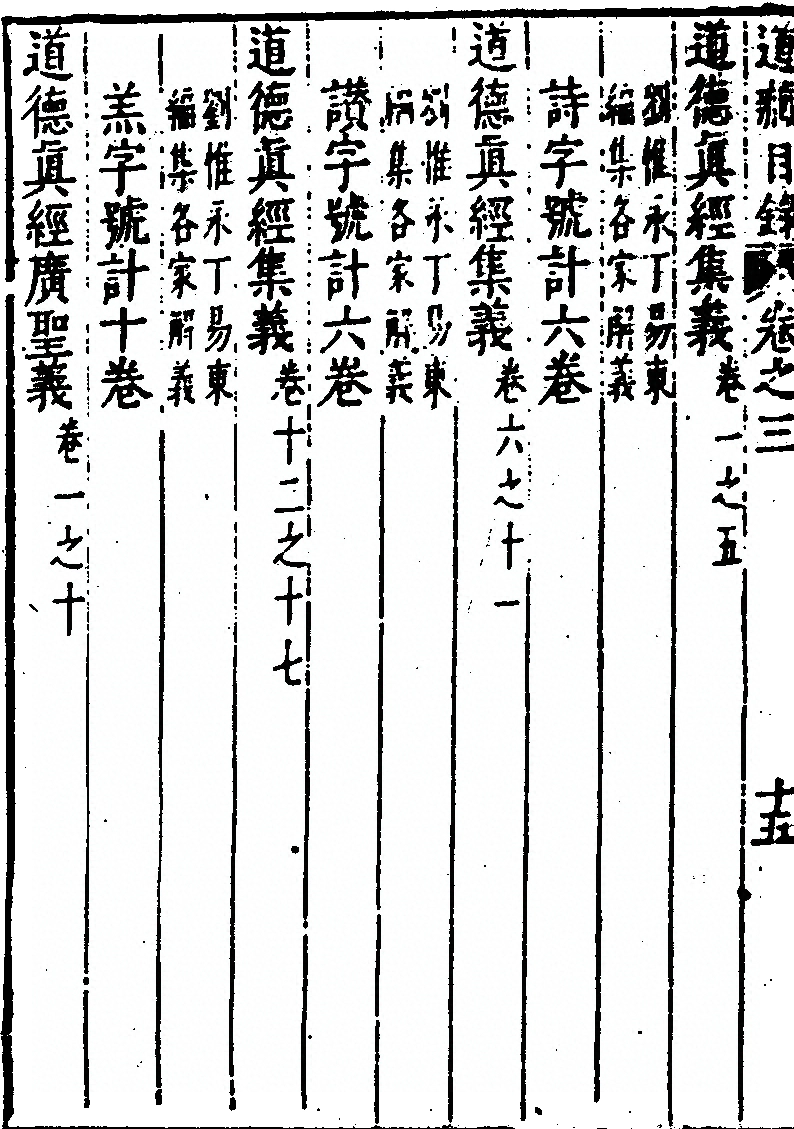 道藏目錄卷之三
十五
道德眞經集義卷一之五
劉惟永丁易東
編集各家解義
詩字號計六卷
道德眞經集義卷六之十一
劉惟永丁易東
編集各家解義
讃字號計六卷
道德眞經集義卷十二之十七
劉惟永丁易東
編集各家解義
羔字號計十卷
道德眞經廣聖義卷一之十